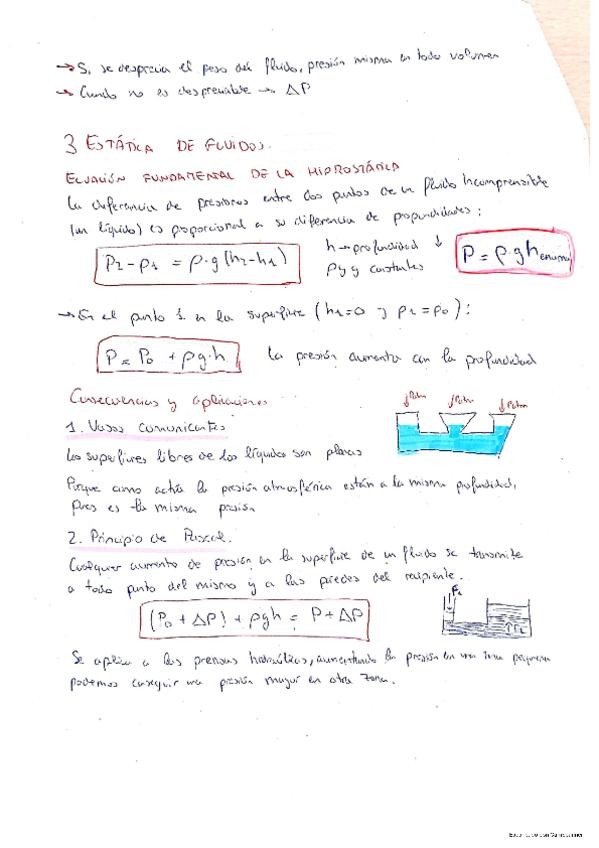 → Si se desprecia el peso del fluido, presión misma en todo volumen
→ Cuando no es despreciable → ΔP
3 ESTÁTICA DE FLUIDOS.
ECUACIÓN FUNDAMENTAL DE LA HIDROSTÁTICA
La diferencia de presiones entre dos puntos de un fluido Incomprensible
(un líquido) es proporcional a su diferencia de profundidades:
P2 - P1 = ρ·g (h2 - h1)
h → profundidad ↓
ρ y g constantes
P = ρ·g h
→ Si el punto 1 en la superficie (h1=0 y P1=P0):
P = P0 + ρg·h
la presión aumenta con la profundidad
Consecuencias y aplicaciones
1. Vasos comunicantes
Patm Patm Patm
Las superficies libres de los líquidos son planas
Porque como actúa la presión atmosférica están a la misma profundidad,
pues es la misma presión
2. Principio de Pascal.
Cualquier aumento de presión en la superficie de un fluido se transmite
a todo punto del mismo y a las paredes del recipiente.
(P0 + ΔP) + ρgh = P + ΔP
Se aplica a las prensas hidraúlicas, aumentando la presión en una zona pequeña
podemos conseguir una presión mayor en otra zona.